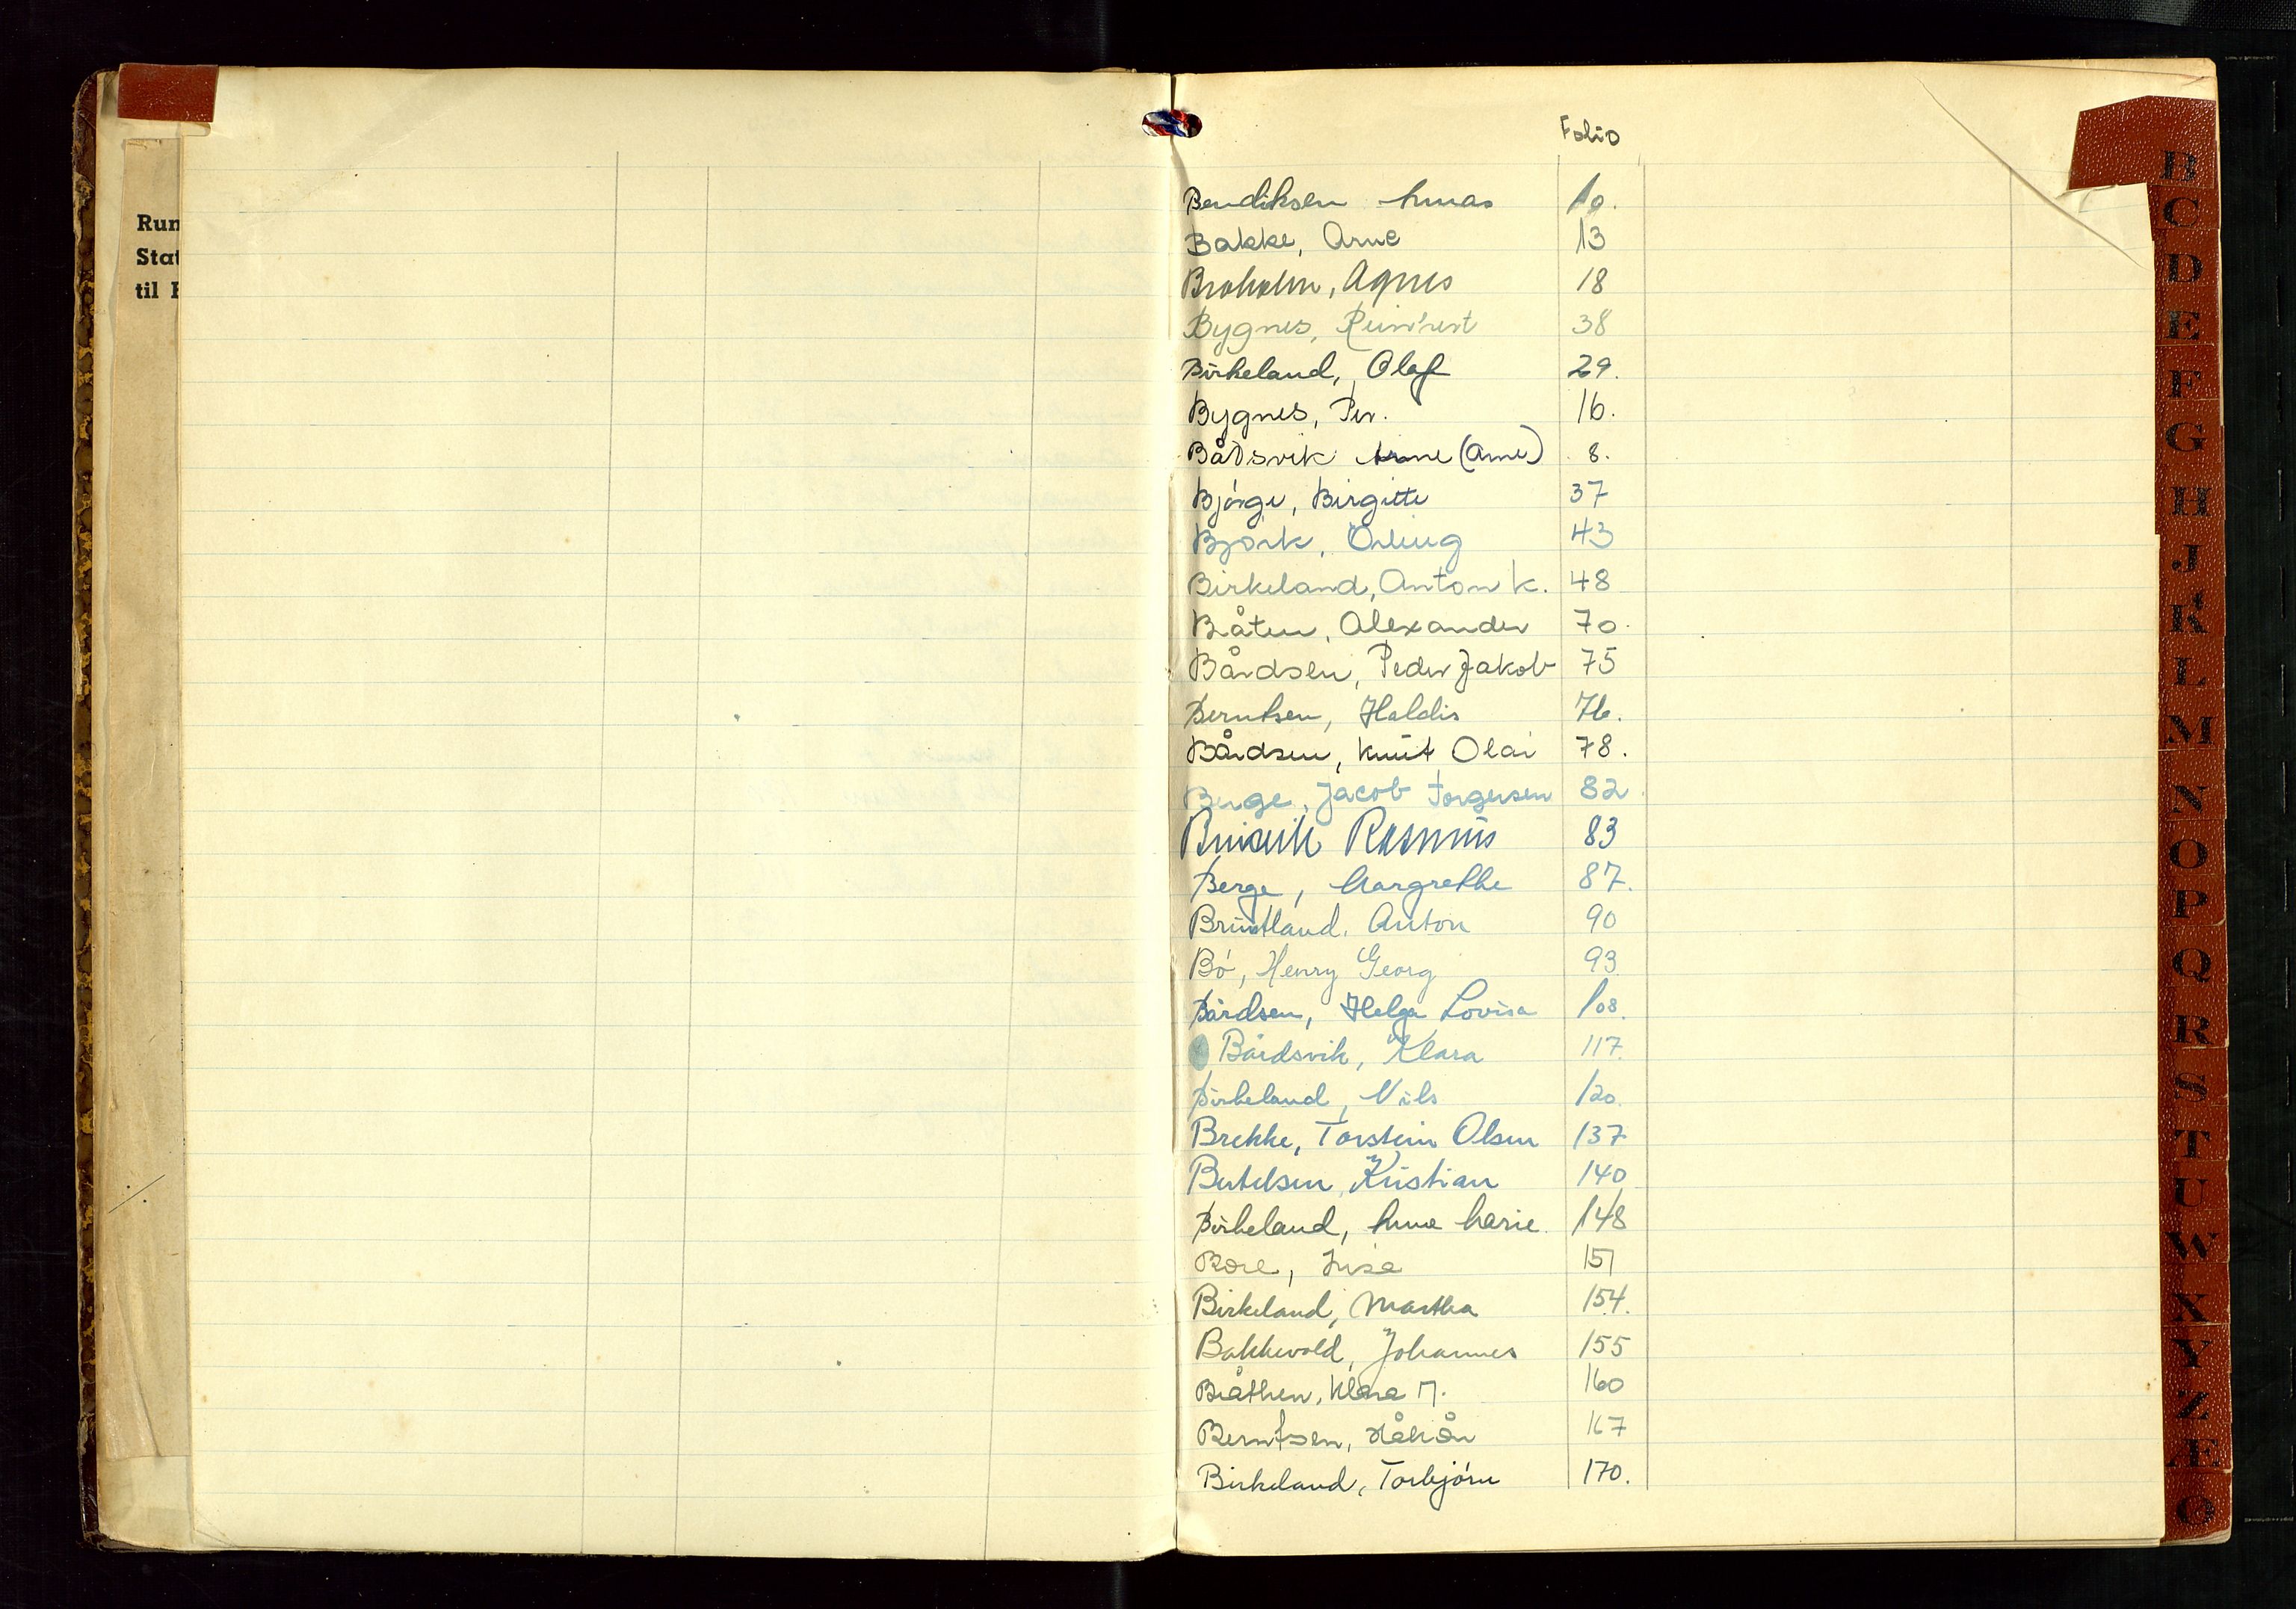 Run
Stat
til
Folio
Bendiksen 10.
Bakke, Arne 13
Broholm, Agnes 18
Bygnes, 38
Birkeland, Olaf 29.
Bygnes, Per. 16.
Bådsvik Arne (Arne) 8.
Bjørge, Birgitte 37
Bjørk, Erling 43
Birkeland, Anton K. 48
Bråten, Alexander 70.
Bårdsen, Peder Jakob 75
Berntsen, Haldis 76.
Bårdsen, Knut Olai 78.
Berge, Jacob Torgersen 82
Rasmus 83
Berge, Margrethe 87.
Bruntland, Anton 90
Bø, Henry Georg 93
Bårdsen, Helga Lovisa 108.
Bårdsvik, Klara 117.
Birkeland, Nils 120.
Brekke, Torstein Olsen 137
Bertelsen, Kristian 140
Birkeland, Anne Marie. 148
Bore, 151
Birkeland, Martha 154.
Bakkevold, Johannes 155
Bråthen, Klara M. 160
Berntsen, Håkon 167
Birkeland, Torbjørn 170.
B
C
D
E
F
G
H
J
K
L
M
N
O
P
Q
R
S
T
U
W
X
Y
Z
Æ
Ø